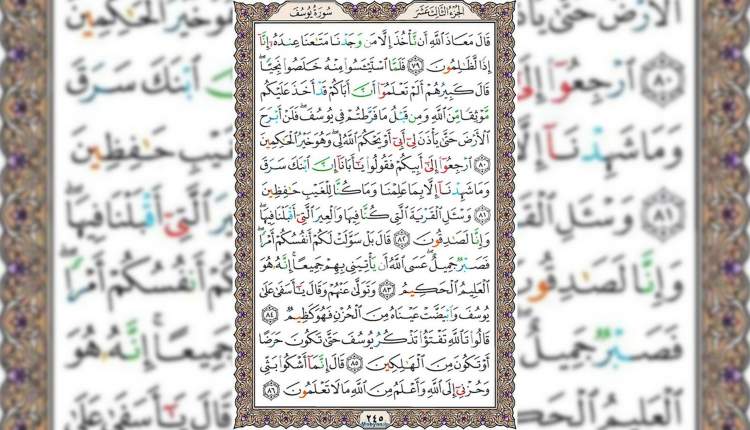 سُورَةُ يُوسُفَ
الجُزْءُ الثَّالِثُ عَشَرَ
قَالَ مَعَاذَ ٱللَّهِ أَن نَّأۡخُذَ إِلَّا مَن وَجَدۡنَا مَتَٰعَنَا عِندَهُۥٓ إِنَّآ
إِذٗا لَّظَٰلِمُونَ ٧٩ فَلَمَّا ٱسۡتَيۡـَٔسُواْ مِنۡهُ خَلَصُواْ نَجِيّٗاۖ
قَالَ كَبِيرُهُمۡ أَلَمۡ تَعۡلَمُوٓاْ أَنَّ أَبَاكُمۡ قَدۡ أَخَذَ عَلَيۡكُم
مَّوۡثِقٗا مِّنَ ٱللَّهِ وَمِن قَبۡلُ مَا فَرَّطتُمۡ فِي يُوسُفَۖ فَلَنۡ أَبۡرَحَ
ٱلۡأَرۡضَ حَتَّىٰ يَأۡذَنَ لِيٓ أَبِيٓ أَوۡ يَحۡكُمَ ٱللَّهُ لِيۖ وَهُوَ خَيۡرُ ٱلۡحَٰكِمِينَ
٨٠ ٱرۡجِعُوٓاْ إِلَىٰٓ أَبِيكُمۡ فَقُولُواْ يَٰٓأَبَانَآ إِنَّ ٱبۡنَكَ سَرَقَ
وَمَا شَهِدۡنَآ إِلَّا بِمَا عَلِمۡنَا وَمَا كُنَّا لِلۡغَيۡبِ حَٰفِظِينَ
٨١ وَسۡـَٔلِ ٱلۡقَرۡيَةَ ٱلَّتِي كُنَّا فِيهَا وَٱلۡعِيرَ ٱلَّتِيٓ أَقۡبَلۡنَا فِيهَاۖ
وَإِنَّا لَصَٰدِقُونَ ٨٢ قَالَ بَلۡ سَوَّلَتۡ لَكُمۡ أَنفُسُكُمۡ أَمۡرٗاۖ
فَصَبۡرٞ جَمِيلٌۖ عَسَى ٱللَّهُ أَن يَأۡتِيَنِي بِهِمۡ جَمِيعًاۚ إِنَّهُۥ هُوَ
ٱلۡعَلِيمُ ٱلۡحَكِيمُ ٨٣ وَتَوَلَّىٰ عَنۡهُمۡ وَقَالَ يَٰٓأَسَفَىٰ عَلَىٰ
يُوسُفَ وَٱبۡيَضَّتۡ عَيۡنَاهُ مِنَ ٱلۡحُزۡنِ فَهُوَ كَظِيمٞ ٨٤
قَالُواْ تَٱللَّهِ تَفۡتَؤُاْ تَذۡكُرُ يُوسُفَ حَتَّىٰ تَكُونَ حَرَضًا
أَوۡ تَكُونَ مِنَ ٱلۡهَٰلِكِينَ ٨٥ قَالَ إِنَّمَآ أَشۡكُواْ بَثِّي
وَحُزۡنِيٓ إِلَى ٱللَّهِ وَأَعۡلَمُ مِنَ ٱللَّهِ مَا لَا تَعۡلَمُونَ ٨٦
٢٤٥